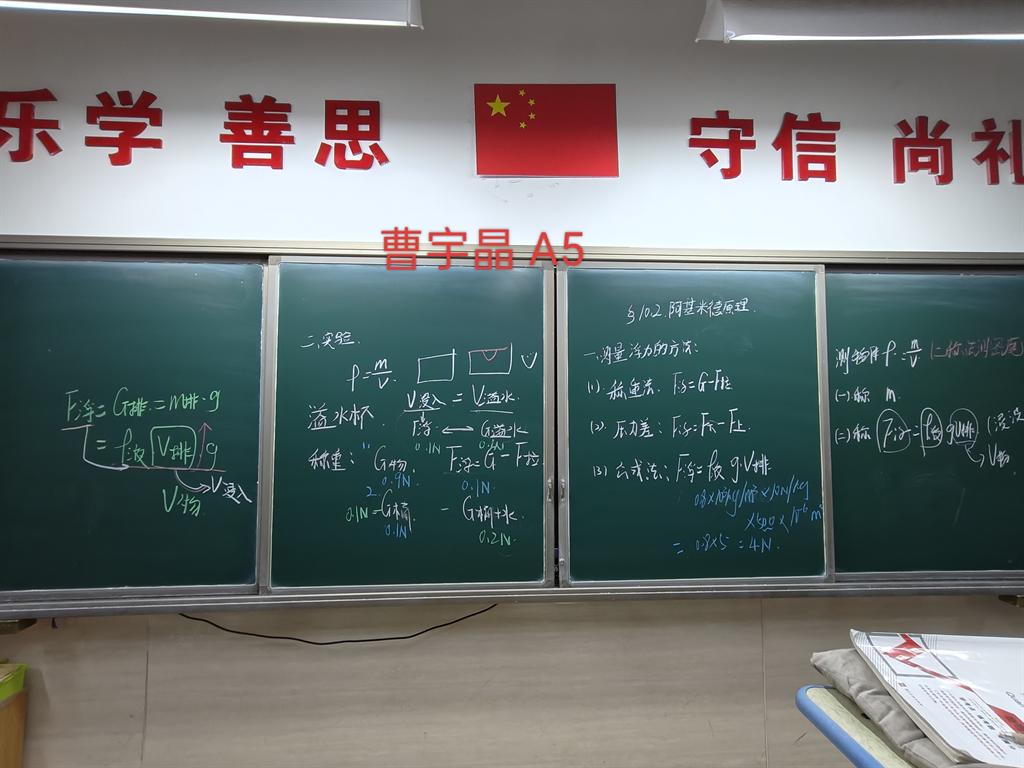 乐学 善思
守信 尚礼
曹宇晶 A5
F浮=G排=m排·g
=ρ液V排g
V物
V浸入
二、实验
ρ=m/V
溢水杯
V浸入=V溢水
F浮 ↔ G溢水
0.1N
称重: G物
F浮=G-F拉
0.9N
0.1N
2.
0.1N=G桶 - G桶+水
0.1N
0.2N
§10.2.阿基米德原理
一.测量浮力的方法:
(1).称重法: F浮=G-F拉
(2).压力差: F浮=F下-F上
(3) 公式法: F浮=ρ液g·V排
0.8×10³kg/m³×10N/kg
×500×10⁻⁶m³
=0.8×5=4N.
测物体ρ=m/V
(一)称 m.
(二)称 F浮=ρ液gV排 (浸没
V物